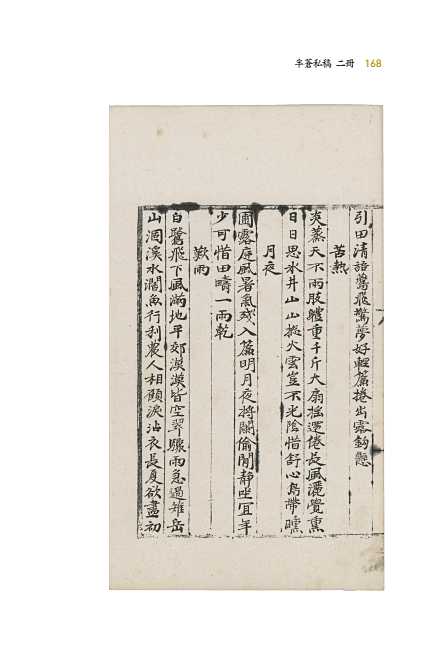 半蒼私稿 二冊 168
引田清語鶯飛驚夢好輕簾捲出露鉤懸
苦熱
炎蒸天不雨肢軆重千斤大扇揺運倦長風灑覺熏
日日思水井山山擬火雲豈不光陰惜舒心鳥帶曛
月夜
圃露庭風暑氣殘入簾明月夜將闌偷閒靜坐宜年
少可惜田疇一雨乾
歎雨
白鷺飛下風滿地平郊漠漠皆空翠驟雨急過雉岳
山澗溪水濶魚行利農人相顧淚沾衣長夏欲盡初